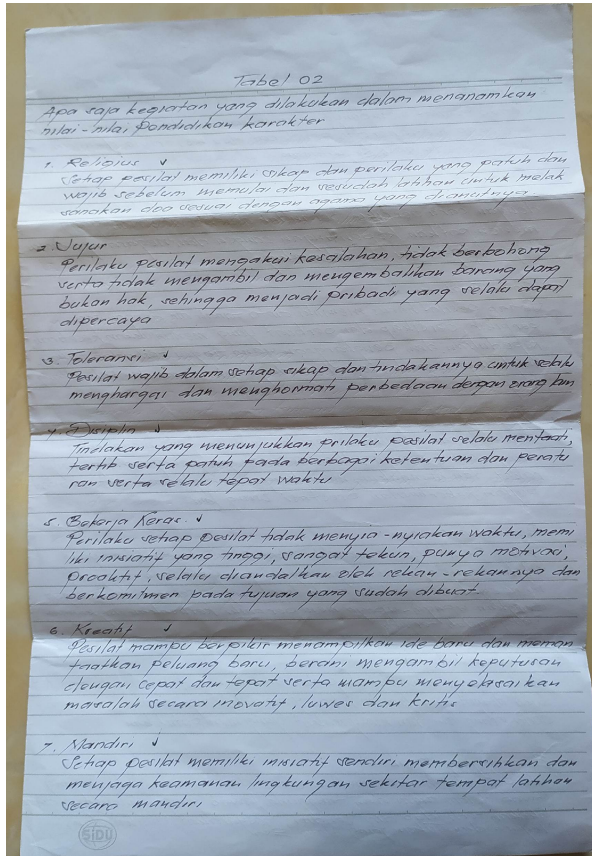 Tabel 02
Apa saja kegiatan yang dilakukan dalam menanamkan
nilai-nilai pendidikan karakter
1. Religius ✓
Setiap pesilat memiliki sikap dan perilaku yang patuh dan
wajib sebelum memulai dan sesudah latihan untuk melak
sanakan doa sesuai dengan agama yang dianutnya
2. Jujur
Perilaku pesilat mengakui kesalahan, tidak berbohong
serta tidak mengambil dan mengembalikan barang yang
bukan hak, sehingga menjadi pribadi yang selalu dapat
dipercaya
3. Toleransi ✓
Pesilat wajib dalam setiap sikap dan tindakannya untuk selalu
menghargai dan menghormati perbedaan dengan orang lain
4. Disiplin ✓
Tindakan yang menunjukkan prilaku pesilat selalu mentaati,
tertib serta patuh pada berbagai ketentuan dan peratu
ran serta selalu tepat waktu
5. Bekerja Keras. ✓
Perilaku setiap pesilat tidak menyia-nyiakan waktu, memi
liki inisiatif yang tinggi, sangat tekun, punya motivasi,
proaktif, selalu diandalkan oleh rekan-rekannya dan
berkomitmen pada tujuan yang sudah dibuat
6. Kreatif ✓
Pesilat mampu berpikir menampilkan ide baru dan meman
faatkan peluang baru, berani mengambil keputusan
dengan cepat dan tepat serta mampu menyelasaikan
masalah secara inovatif, luwes dan kritis
7. Mandiri ✓
Setiap pesilat memiliki inisiatif sendiri membersihkan dan
menjaga keamanan lingkungan sekitar tempat latihan
secara mandiri
SIDU